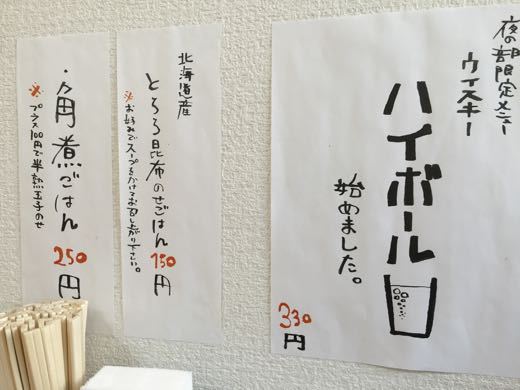 夜の部限定メニュー
ウィスキー
ハイボール
始めました。
330円
北海道産
とろろ昆布のせごはん 150円
※お好みでスープをかけてお召し上がり下さい。
・角煮ごはん 250円
※プラス100円で半熟玉子のせ